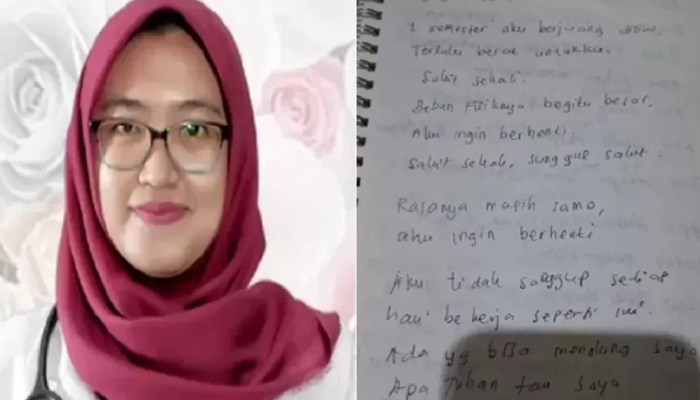 1 semester aku berjuang disini.
Terlalu berat untukku.
Sakit sekali.
Beban Fisiknya begitu besar.
Aku ingin berhenti.
Sakit sekali, sungguh sakit.
Rasanya masih sama,
aku ingin berhenti.
Aku tidak sanggup setiap
hari bekerja seperti ini.
Ada yg bisa menolong saya
Apa Tuhan tau saya